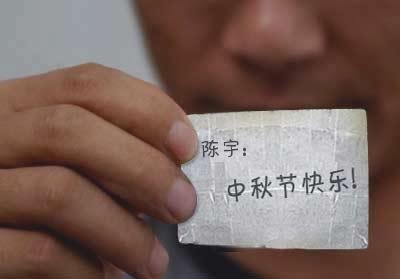 陈宇：
中秋节快乐!